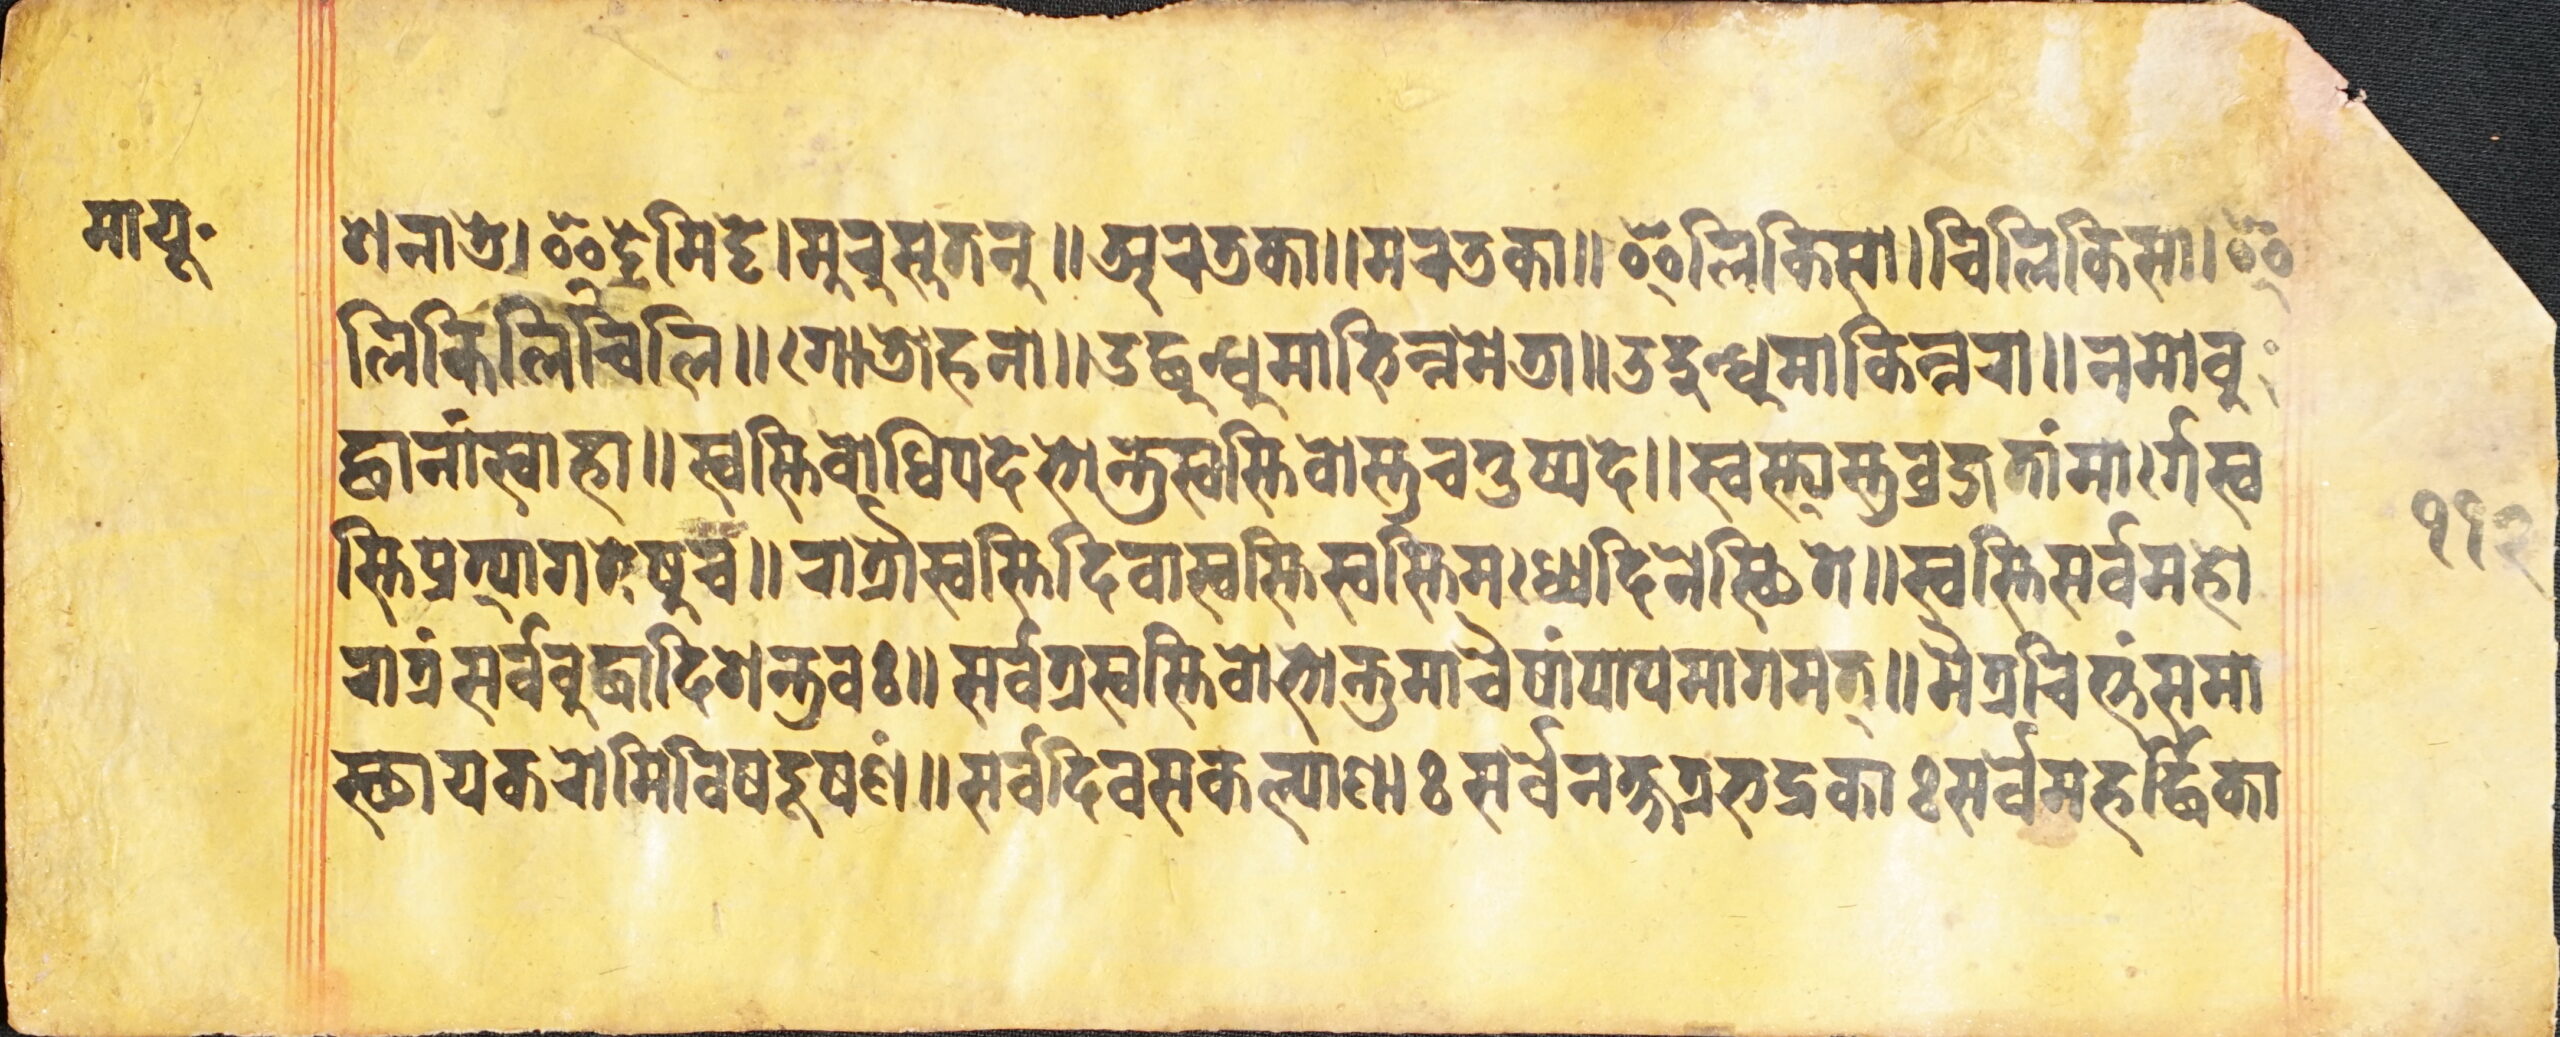 मायू॰
शनाते। इट्टेमिट्टे।मुरुसुतनु॥अरतका॥मरतका॥इलिकिसा।चिलिकिसा।इ
लिकिलिचिलि॥गोडोहना॥उद्धुन्धुमाभिन्नमेडा॥उदुन्धुमाकिन्नरा॥नमोबु
द्धानांस्वाहा॥स्वस्तिवोद्विपदेभोन्तुस्वस्तिवोस्तुचतुष्पदे॥स्वस्त्यस्तुव्रजतांमार्गेस्व
स्तिप्रत्यागतेषुच॥रात्रौस्वस्तिदिवास्वस्तिस्वस्तिमध्यदिनेस्थिते॥स्वस्तिसर्वमहो
रात्रंसर्वबुद्धादिशन्तुवः॥सर्वत्रस्वस्तिवोभोन्तुमाचैषांपापमागमत्॥मैत्रचित्तंसमा
स्थायकरोमिविषदूषणं॥सर्वदिवसकल्याणाःसर्वेनक्षत्रभद्रकाःसर्वेमहर्द्धिका
११२